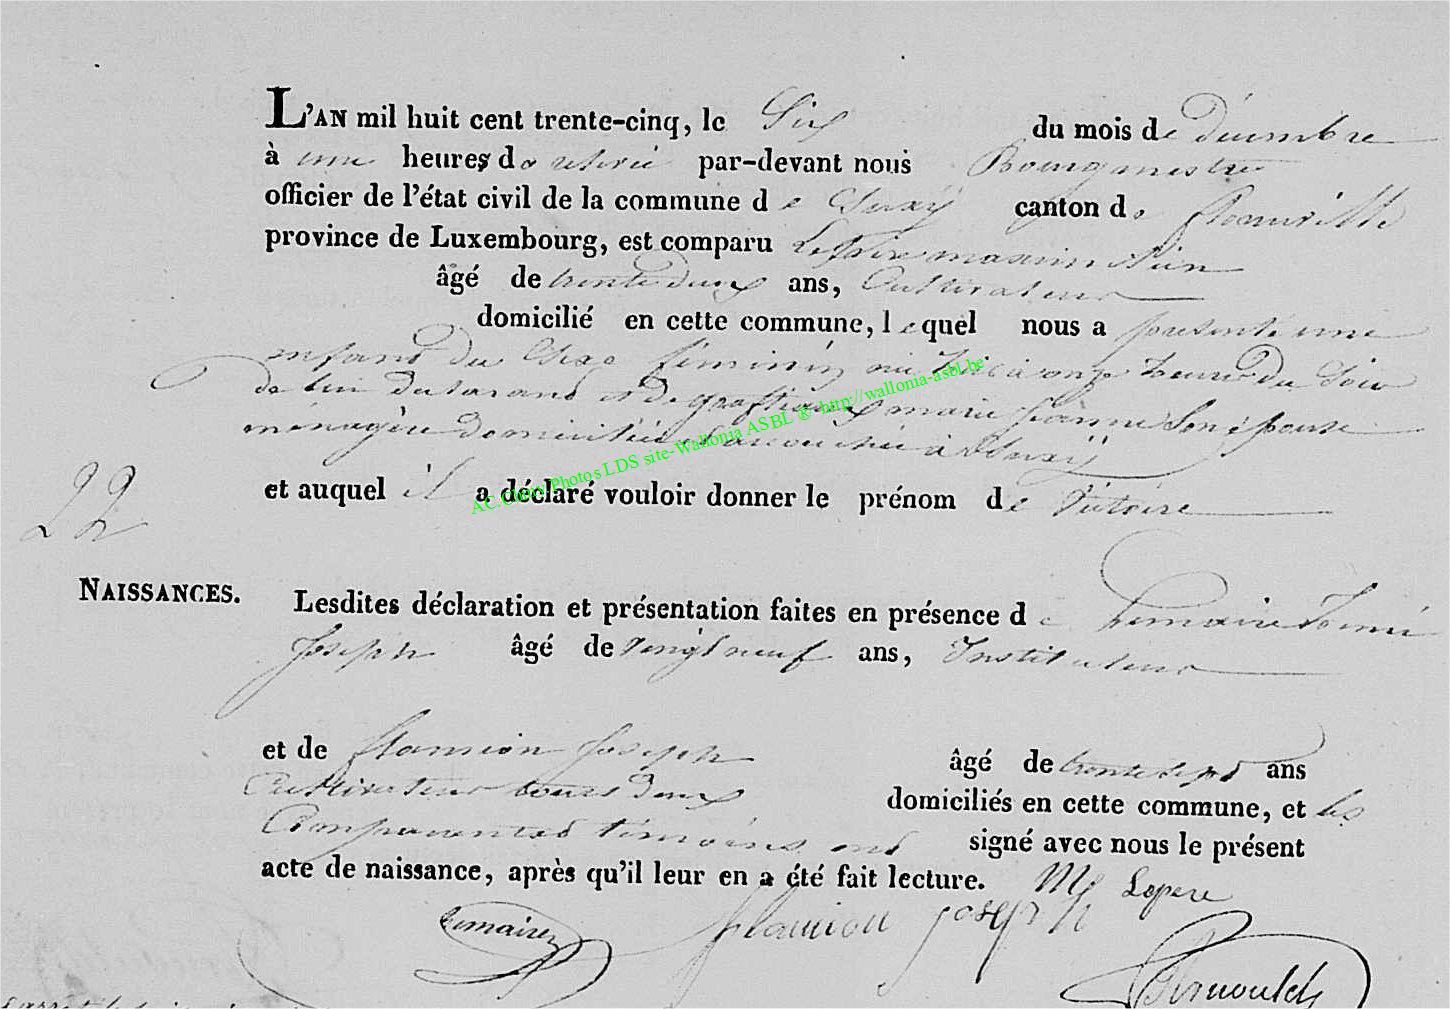 L'AN mil huit cent trente-cinq, le Six du mois de décembre
à une heures de relevée par-devant nous Bourgmestre
officier de l'état civil de la commune de Suxÿ canton de florenville
province de Luxembourg, est comparu Lepere maximilien
âgé de trente deux ans, Cultivateur
domicilié en cette commune, lequel nous a présenté une
enfant du Sexe féminin née hier à onze heures du Soir
de lui déclarant et de marie jeanne Son épouse
ménagère domiciliée et accouchée à Suxÿ
et auquel il a déclaré vouloir donner le prénom de Victoire
AC.Chiny Photos LDS site-Wallonia ASBL ® http://wallonia-asbl.be
22
NAISSANCES.
Lesdites déclaration et présentation faites en présence de Lemaire
Joseph âgé de vingt neuf ans, Instituteur
et de flamion Joseph âgé de trente sept ans
Cultivateur tous deux domiciliés en cette commune, et les
Comparant et témoins ont signé avec nous le présent
acte de naissance, après qu'il leur en a été fait lecture. Ml Lepere
Lemaire flamion joseph